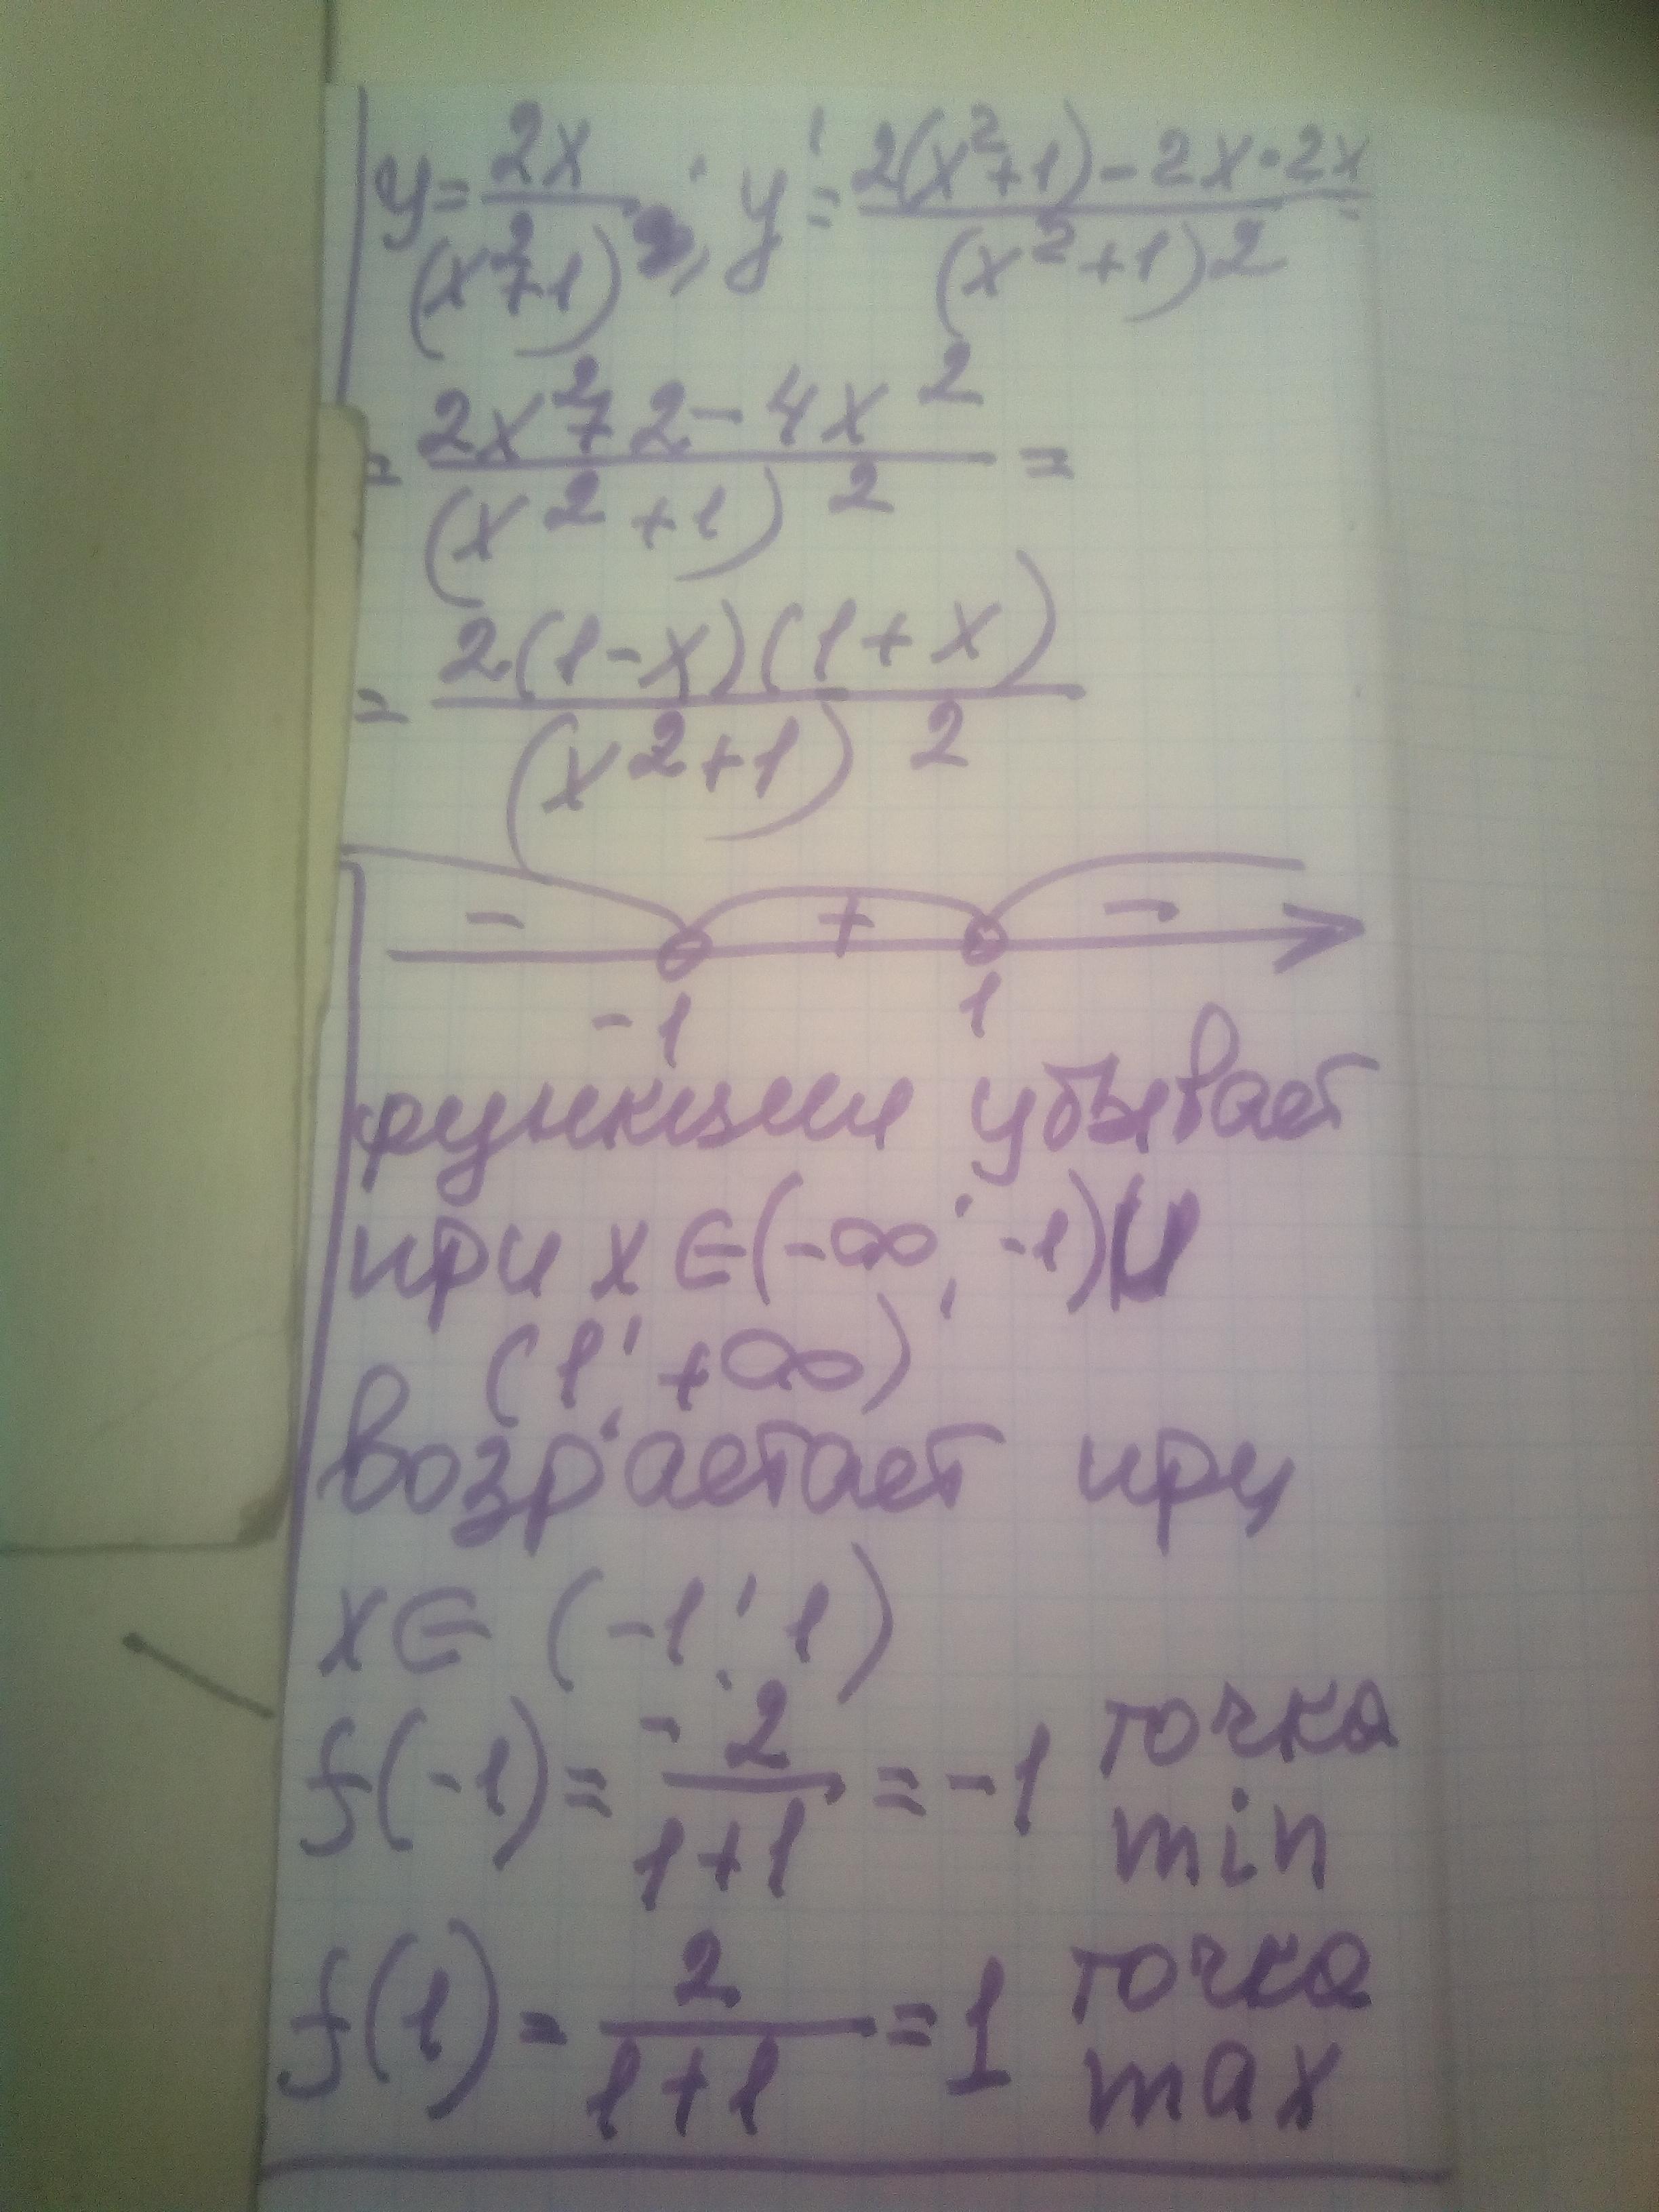 y = 2x/(x²+1) ; y' = (2(x²+1) - 2x·2x)/(x²+1)² =
= (2x²+2-4x²)/(x²+1)² =
= 2(1-x)(1+x)/(x²+1)²
- + -
-1 1
функция убывает
при x∈(-∞; -1)U
(1; +∞)
возрастает при
x∈ (-1; 1)
f(-1) = -2/(1+1) = -1 точка
min
f(1) = 2/(1+1) = 1 точка
max